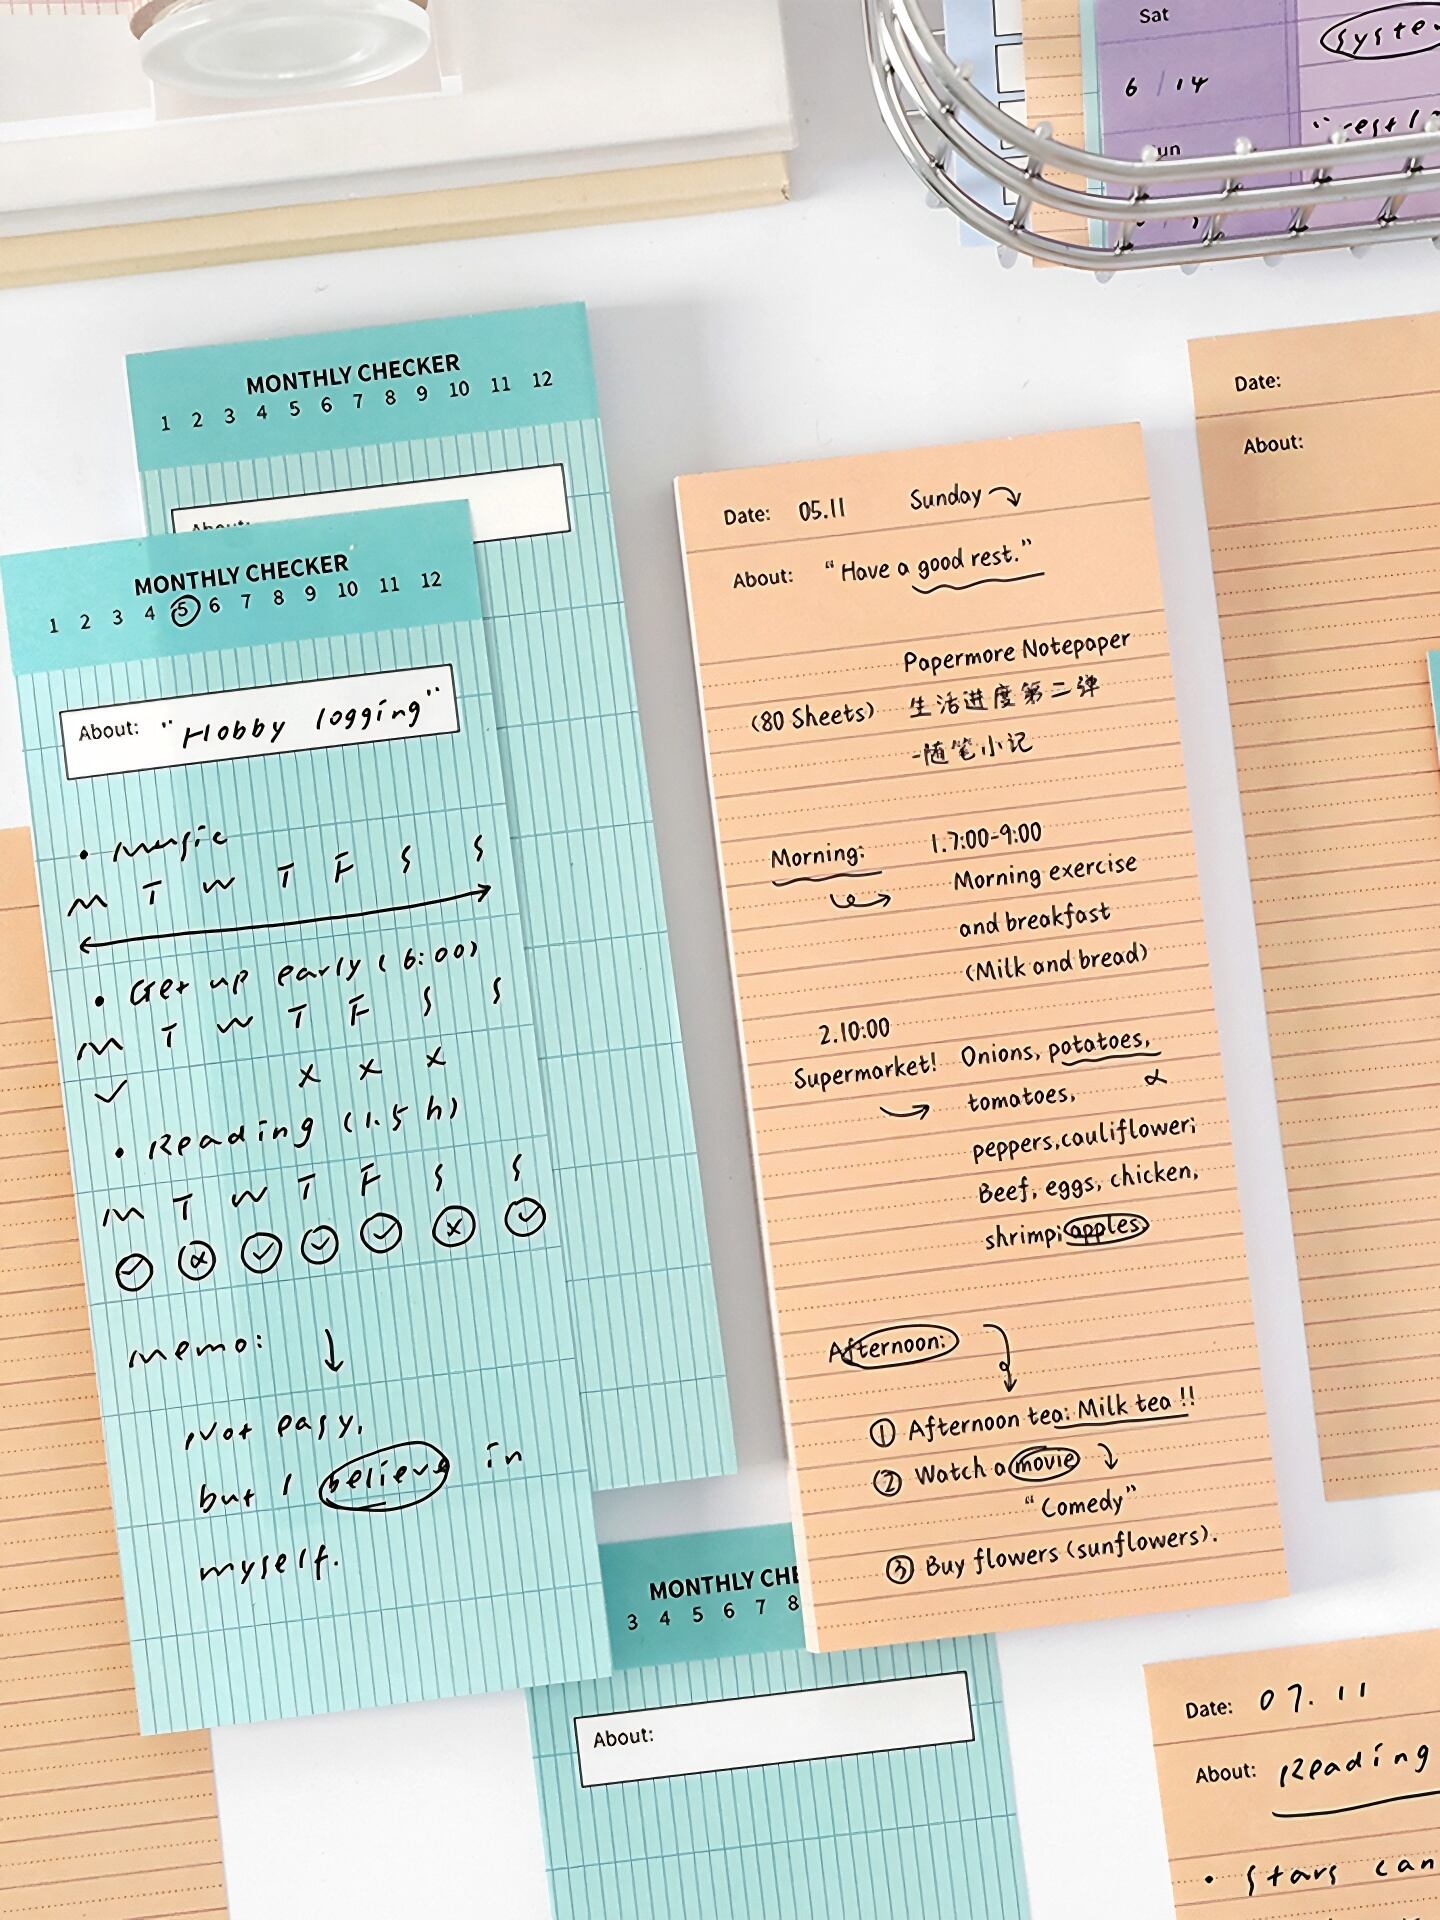 Sat
6 / 14
MONTHLY CHECKER
1 2 3 4 5 6 7 8 9 10 11 12
About:
MONTHLY CHECKER
1 2 3 4 5 6 7 8 9 10 11 12
About: "Hobby logging"
• Music
M T W T F S S
• Get up early (6:00)
M T W T F S S
✓ × × ×
• Reading (1.5 h)
M T W T F S S
✓ × ✓ ✓ ✓ × ✓
Memo: ↓
Not easy,
but I believe in
myself.
Date: 05.11 Sunday
About: "Have a good rest."
Papermore Notepaper
(80 Sheets) 生活进度第二弹
-随笔小记
Morning: 1.7:00-9:00
Morning exercise
and breakfast
(Milk and bread)
2.10:00
Supermarket! Onions, potatoes,
tomatoes,
peppers,cauliflower;
Beef, eggs, chicken,
shrimp; apples
Afternoon:
① Afternoon tea: Milk tea !!
② Watch a movie
"Comedy"
③ Buy flowers (sunflowers).
Date:
About:
MONTHLY CHE
3 4 5 6 7 8
About:
Date: 07.11
About: Reading
• Stars can